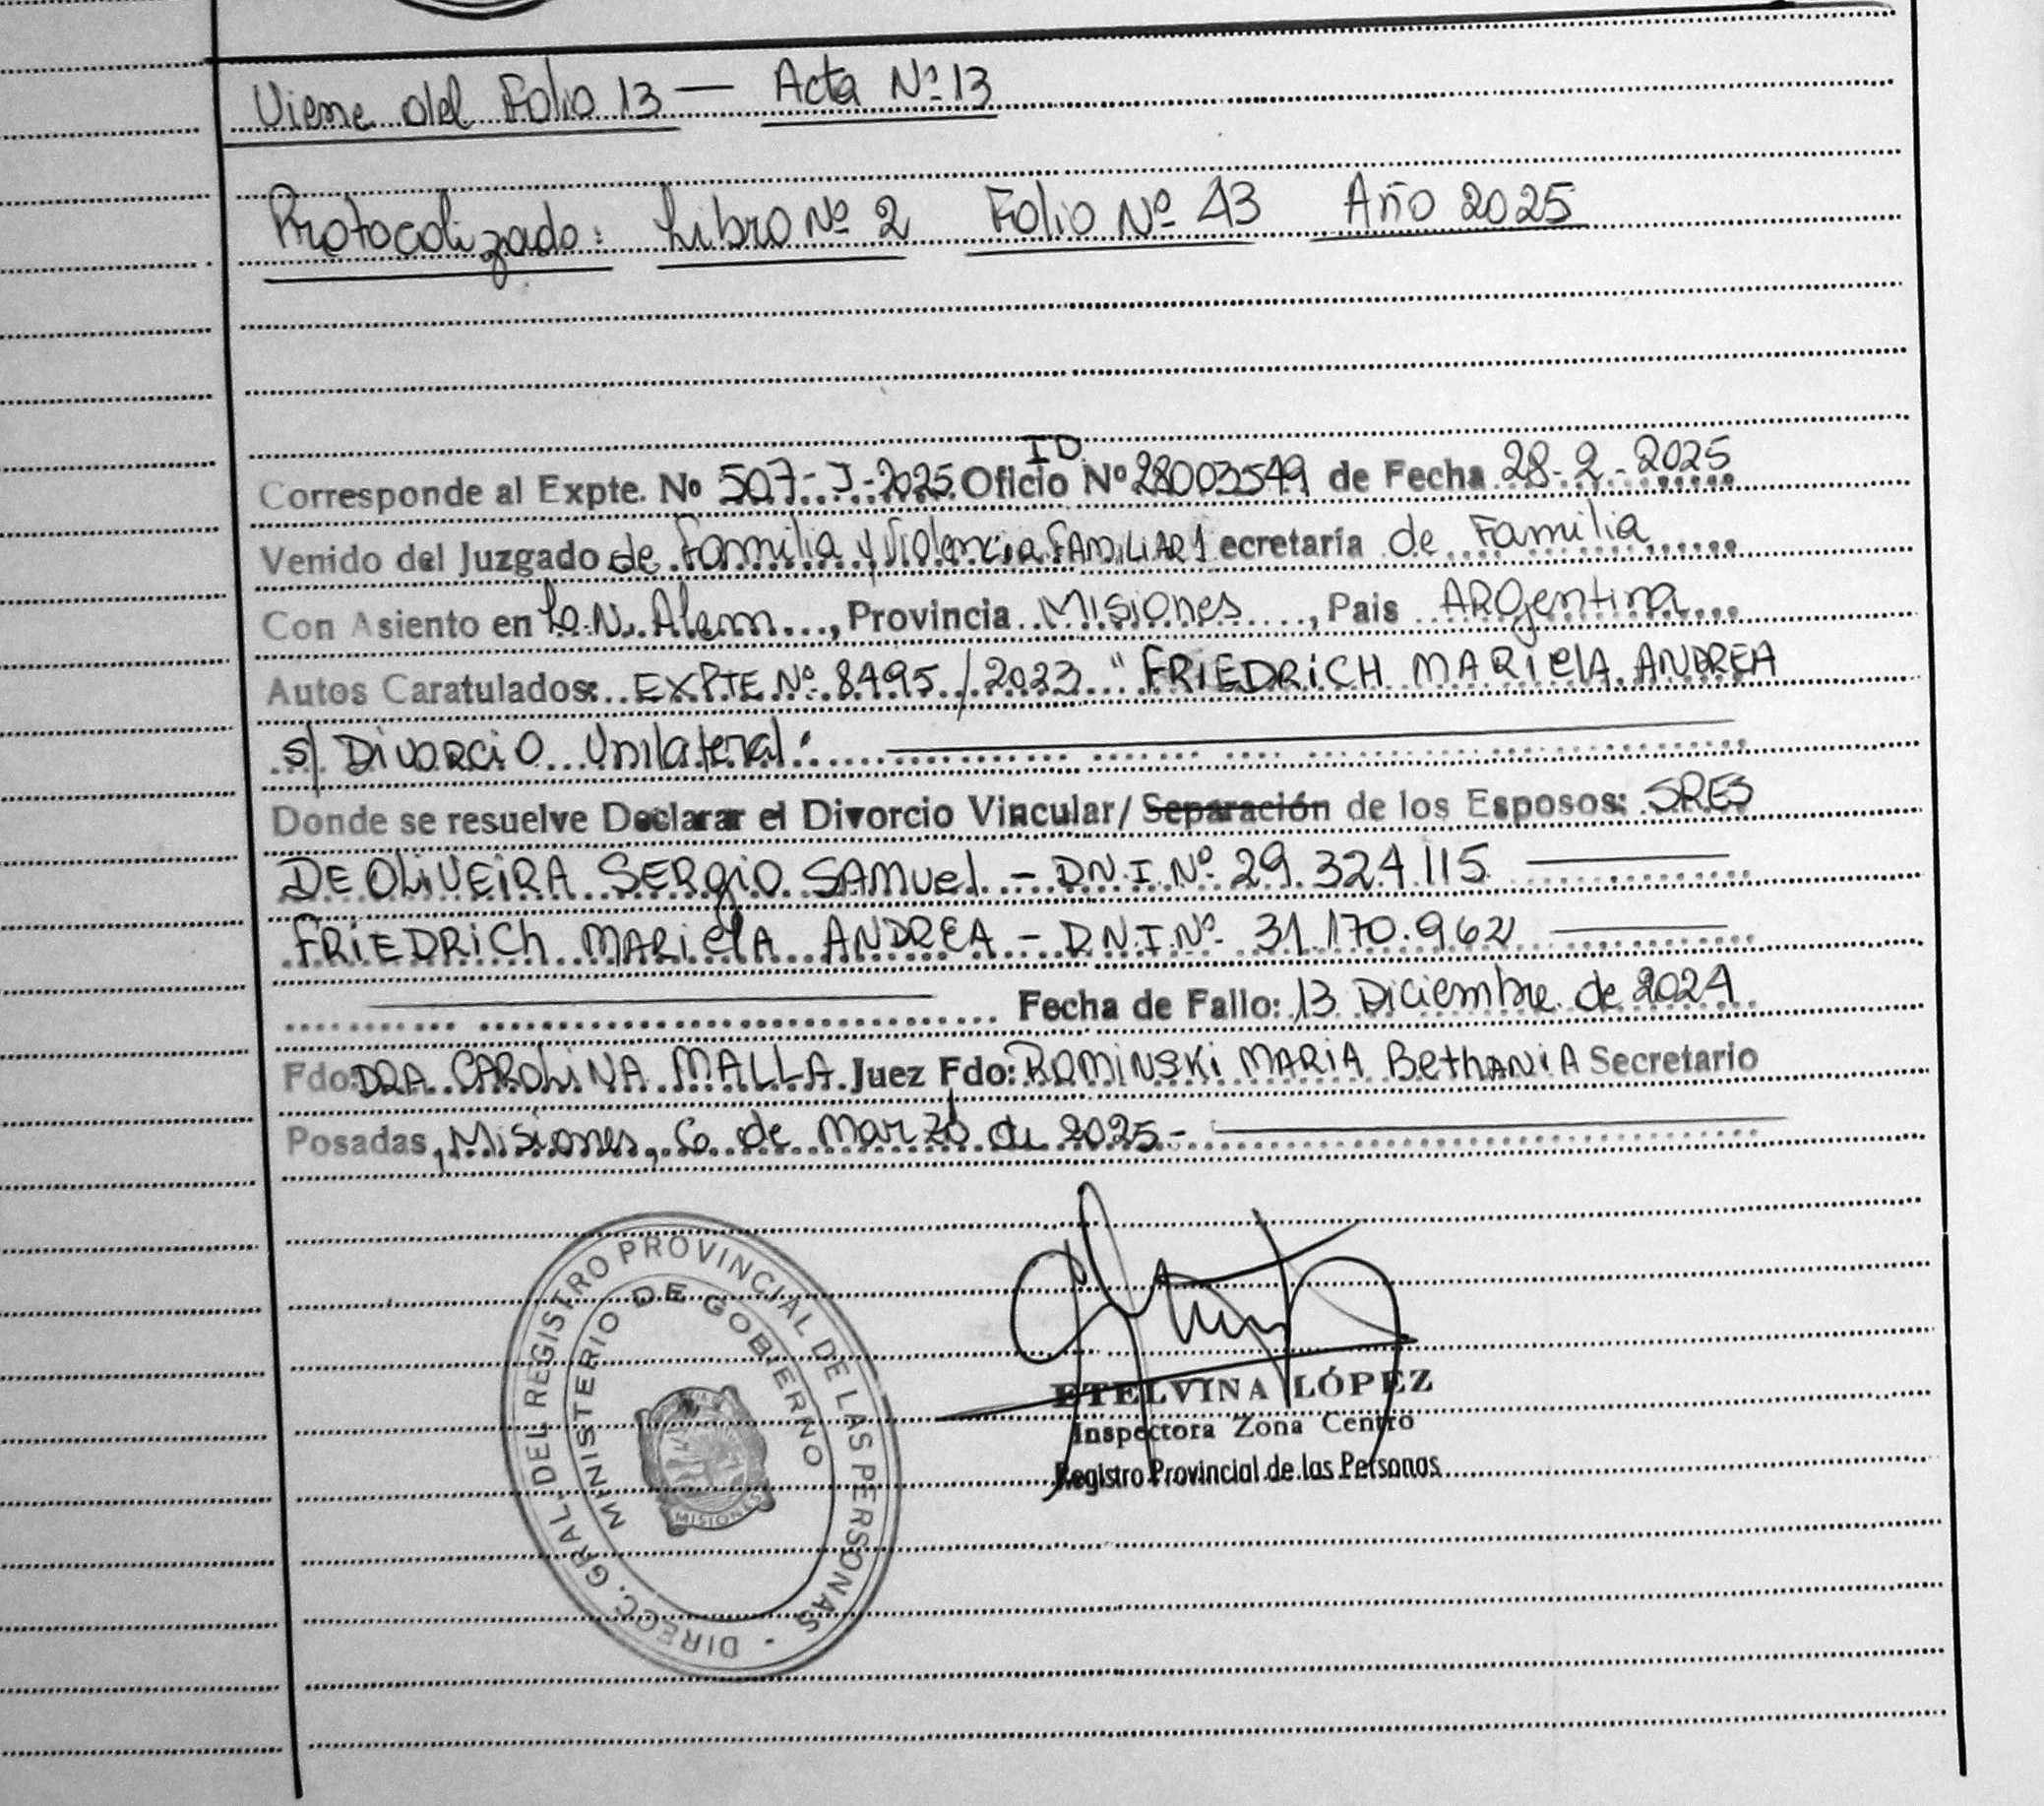 Viene del Folio 13 — Acta Nº 13
Protocolizado: Libro Nº 2 Folio Nº 43 Año 2025
ID.
Corresponde al Expte. No 507-J-2025 Oficio Nº 28003549 de Fecha 28-2-2025
Venido del Juzgado de Familia y Violencia FAMILIAR 1 ecretaría de Familia
Con Asiento en L.N. Alem, Provincia Misiones, Pais ARgentina
Autos Caratulados: EXPTE Nº 8495/2023 "FRIEDRICH MARIELA ANDREA
s/ Divorcio Unilateral"
Donde se resuelve Declarar el Divorcio Vincular/ Separación de los Esposos: SRES
DE OLIVEIRA SERgiO SAMUEL - D.N.I. Nº 29.324.115
FRIEDRICH MARIELA ANDREA - D.N.I. Nº 31.170.962
Fecha de Fallo: 13 Diciembre de 2024
Fdo: DRA CAROLINA MALLA Juez Fdo: ROMINSKI MARIA BETHANIA Secretario
Posadas, Misiones, 6 de Marzo de 2025-
DIRECC. GRAL. DEL REGISTRO PROVINCIAL DE LAS PERSONAS -
MINISTERIO DE GOBIERNO
MISIONES
ETELVINA LÓPEZ
Inspectora Zona Centro
Registro Provincial de las Personas